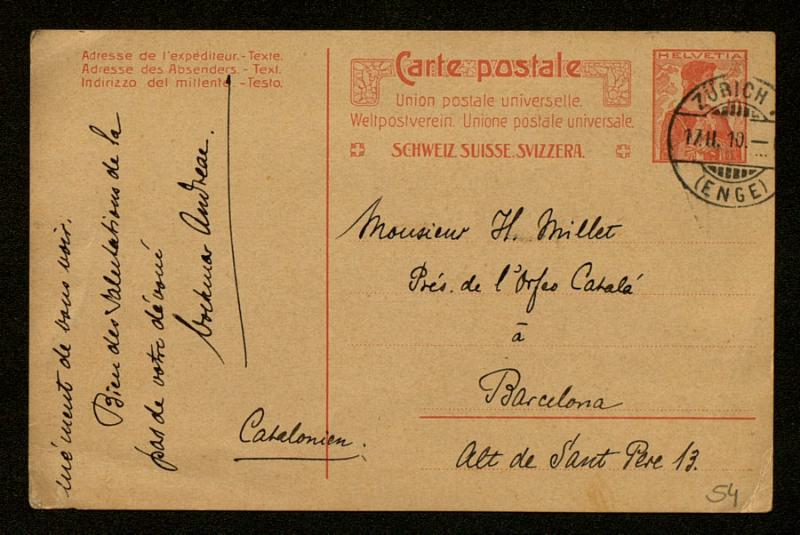 Adresse de l'expéditeur.-Texte.
Adresse des Absenders.-Text.
Indirizzo del mittente.-Testo.
Carte postale
Union postale universelle.
Weltpostverein. Unione postale universale.
SCHWEIZ. SUISSE. SVIZZERA.
HELVETIA
ZÜRICH
17.II.10.—
(ENGE)
Monsieur H. Millet
Prés. de l'Orfeo Catalá
à
Barcelona
Alt de Sant Pere 13.
Catalonien.
54
de vous voir.
Bien des salutations de la
pas de votre dévoué
Volkmar Andreae.